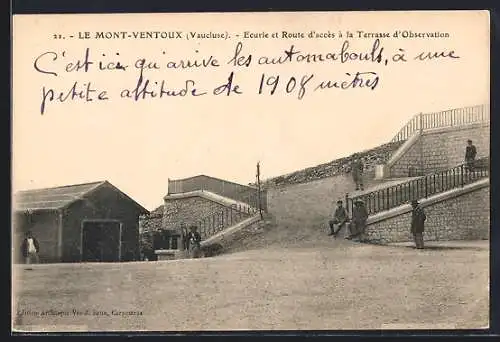 22. - LE MONT-VENTOUX (Vaucluse). - Ecurie et Route d'accès à la Terrasse d'Observation
C'est ici qu'arrive les automabouls, à une
petite altitude de 1908 mètres
Edition Artistique Vve J. Brun, Carpentras